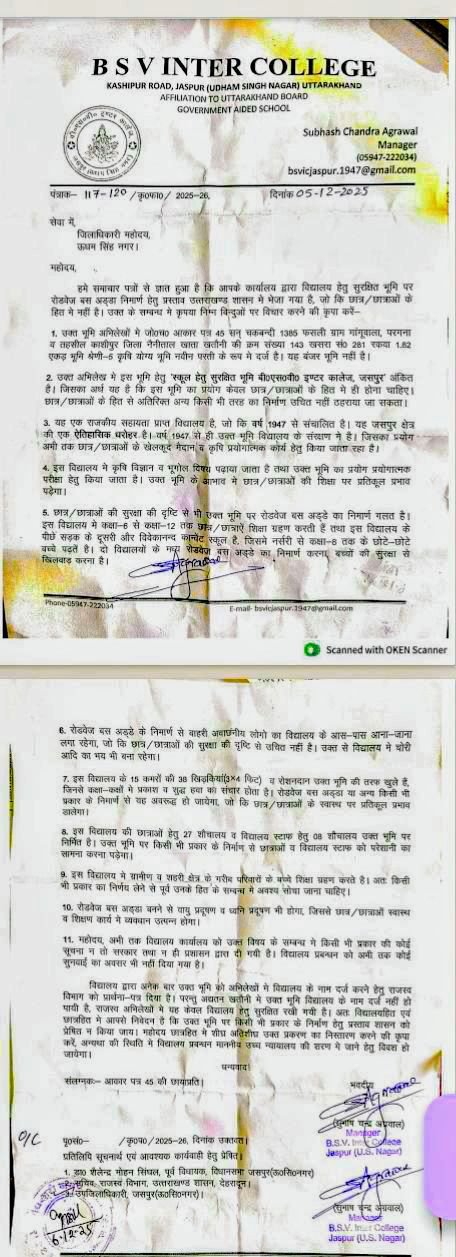 B S V INTER COLLEGE
KASHIPUR ROAD, JASPUR (UDHAM SINGH NAGAR) UTTARAKHAND
AFFILIATION TO UTTARAKHAND BOARD
GOVERNMENT AIDED SCHOOL
Subhash Chandra Agrawal
Manager
(05947-222034)
bsvicjaspur.1947@gmail.com
पंत्राक– 117-120 /कृ०फा०/ 2025-26, दिनांक 05-12-2025
सेवा में,
जिलाधिकारी महोदय,
ऊधम सिंह नगर।
महोदय,
हमे समाचार पत्रों से ज्ञात हुआ है कि आपके कार्यालय द्वारा विद्यालय हेतु सुरक्षित भूमि पर
रोडवेज बस अड्डा निर्माण हेतु प्रस्ताव उत्तराखण्ड शासन मे भेजा गया है, जो कि छात्र/छात्राओं के
हित मे नहीं है। उक्त के सम्बन्ध मे कृपया निम्न बिन्दुओं पर विचार करने की कृपा करें–
1. उक्त भूमि अभिलेखों मे जो०च० आकार पत्र 45 सन् चकबन्दी 1385 फसली ग्राम गांगूवाला, परगना
व तहसील काशीपुर जिला नैनीताल खाता खतौनी की क्रम संख्या 143 खसरा सं० 281 रकवा 1.82
एकड़ भूमि श्रेणी–5 कृषि योग्य भूमि नवीन परती के रूप मे दर्ज है। यह बंजर भूमि नहीं है।
2. उक्त अभिलेख मे इस भूमि हेतु 'स्कूल हेतु सुरक्षित भूमि बी०एस०वी० इण्टर कालेज, जसपुर' अंकित
है। जिसका अर्थ यह है कि इस भूमि का प्रयोग केवल छात्र/छात्राओं के हित मे ही होना चाहिए।
छात्र/छात्राओं के हित से अतिरिक्त अन्य किसी भी तरह का निर्माण उचित नहीं ठहराया जा सकता।
3. यह एक राजकीय सहायता प्राप्त विद्यालय है, जो कि वर्ष 1947 से संचालित है। यह जसपुर क्षेत्र
की एक ऐतिहासिक धरोहर है। वर्ष 1947 से ही उक्त भूमि विद्यालय के संरक्षण मे है। जिसका प्रयोग
अभी तक छात्र/छात्राओं के खेलकूद मैदान व कृषि प्रयोगात्मक कार्य हेतु किया जाता रहा है।
4. इस विद्यालय मे कृषि विज्ञान व भूगोल विषय पढ़ाया जाता है तथा उक्त भूमि का प्रयोग प्रयोगात्मक
परीक्षा हेतु किया जाता है। उक्त भूमि के अभाव मे छात्र/छात्राओं की शिक्षा पर प्रतिकूल प्रभाव
पड़ेगा।
5. छात्र/छात्राओं की सुरक्षा की दृष्टि से भी उक्त भूमि पर रोडवेज बस अड्डे का निर्माण गलत है।
इस विद्यालय मे कक्षा–6 से कक्षा–12 तक छात्र/छात्राऐं शिक्षा ग्रहण करती हैं तथा इस विद्यालय के
पीछे सड़क के दूसरी और विवेकानन्द कान्वेंट स्कूल है, जिसमे नर्सरी से कक्षा–8 तक के छोटे–छोटे
बच्चे पढ़ते है। दो विद्यालयों के मध्य रोडवेज बस अड्डे का निर्माण करना, बच्चों की सुरक्षा से
खिलवाड़ करना है।
Phone-05947-222034 E-mail- bsvicjaspur.1947@gmail.com
Scanned with OKEN Scanner
6. रोडवेज बस अड्डे के निर्माण से बाहरी अवांछनीय लोगो का विद्यालय के आस–पास आना–जाना
लगा रहेगा, जो कि छात्र/छात्राओं की सुरक्षा की दृष्टि से उचित नहीं है। उक्त से विद्यालय मे चोरी
आदि का भय भी बना रहेगा।
7. इस विद्यालय के 15 कमरों की 38 खिड़कियां(3×4 फिट) व रोशनदान उक्त भूमि की तरफ खुले हैं,
जिनसे कक्षा–कक्षों मे प्रकाश व शुद्ध हवा का संचार होता है। रोडवेज बस अड्डा या अन्य किसी भी
प्रकार के निर्माण से यह अवरूद्ध हो जायेगा, जो कि छात्र/छात्राओं के स्वास्थ पर प्रतिकूल प्रभाव
डालेगा।
8. इस विद्यालय की छात्राओं हेतु 27 शौचालय व विद्यालय स्टाफ हेतु 08 शौचालय उक्त भूमि पर
निर्मित है। उक्त भूमि पर किसी भी प्रकार के निर्माण से छात्राओं व विद्यालय स्टाफ को परेशानी का
सामना करना पड़ेगा।
9. इस विद्यालय मे ग्रामीण व शहरी क्षेत्र के गरीब परिवारों के बच्चे शिक्षा ग्रहण करते है। अतः किसी
भी प्रकार का निर्णय लेने से पूर्व उनके हित के सम्बन्ध मे अवश्य सोचा जाना चाहिए।
10. रोडवेज बस अड्डा बनने से वायु प्रदूषण व ध्वनि प्रदूषण भी होगा, जिससे छात्र/छात्राओं स्वास्थ
व शिक्षण कार्य मे व्यवधान उत्पन्न होगा।
11. महोदय, अभी तक विद्यालय कार्यालय को उक्त विषय के सम्बन्ध मे किसी भी प्रकार की कोई
सूचना न तो सरकार तथा न ही प्रशासन द्वारा दी गयी है। विद्यालय प्रबन्धन को अभी तक कोई
सुनवाई का अवसर भी नहीं दिया गया है।
विद्यालय द्वारा अनेक बार उक्त भूमि को अभिलेखों मे विद्यालय के नाम दर्ज करने हेतु राजस्व
विभाग को प्रार्थना–पत्र दिया है। परन्तु अद्यतन खतौनी मे उक्त भूमि विद्यालय के नाम दर्ज नहीं हो
पायी है, राजस्व अभिलेखों मे यह केवल विद्यालय हेतु सुरक्षित रखी गयी है। अतः विद्यालयहित एवं
छात्रहित मे आपसे निवेदन है कि उक्त भूमि पर किसी भी प्रकार के निर्माण हेतु प्रस्ताव शासन को
प्रेषित न किया जाय। महोदय छात्रहित मे शीघ्र अतिशीघ्र उक्त प्रकरण का निस्तारण करने की कृपा
करें, अन्यथा की स्थिति मे विद्यालय प्रबन्धन माननीय उच्च न्यायालय की शरण मे जाने हेतु विवश हो
जायेगा।
धन्यवाद।
संलग्नक:– आकार पत्र 45 की छायाप्रति।
भवदीय
(सुभाष चन्द्र अग्रवाल)
Manager
B.S.V. Inter College
Jaspur (U.S. Nagar)
O/C
पृ०सं०– /कृ०प०/2025–26, दिनांक उक्तवत्।
प्रतिलिपि सूचनार्थ एवं आवश्यक कार्यवाही हेतु प्रेषित।
1. डा० शैलेन्द्र मोहन सिंघल, पूर्व विधायक, विधानसभा जसपुर(ऊ०सि०नगर)
2. सचिव, राजस्व विभाग, उत्तराखण्ड शासन, देहरादून।
3. उपजिलाधिकारी, जसपुर(ऊ०सि०नगर)।
6-12-25
(सुभाष चन्द्र अग्रवाल)
Manager
B.S.V. Inter College
Jaspur (U.S. Nagar)